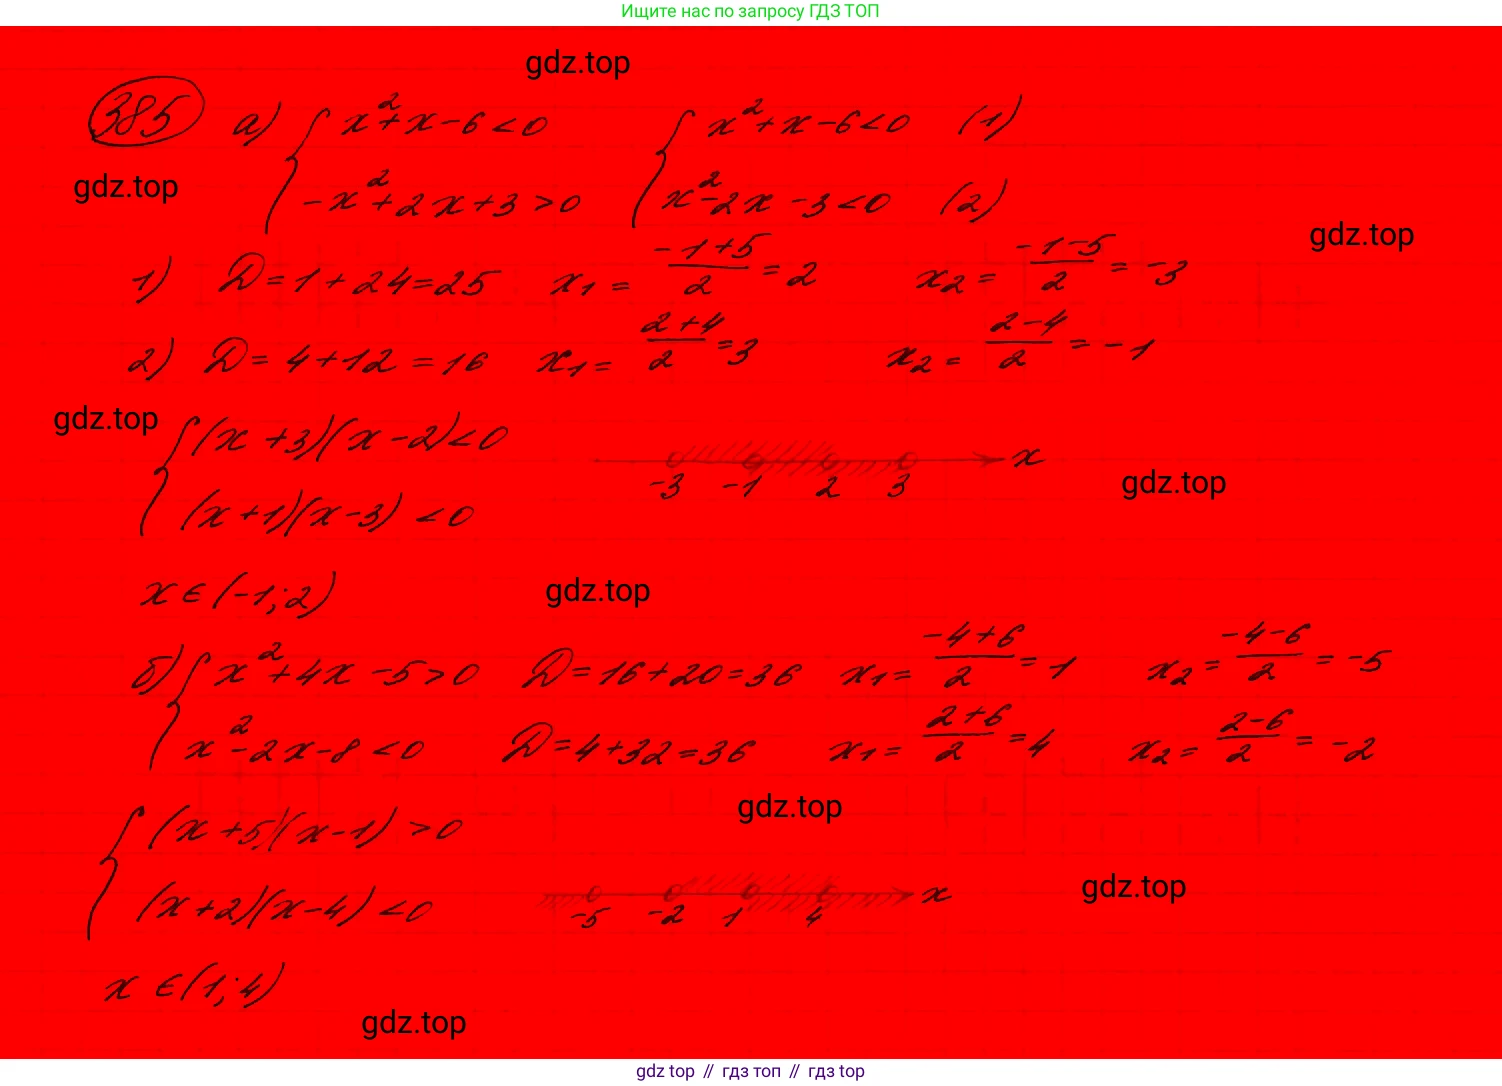 Ищите нас по запросу ГДЗ ТОП
gdz.top
385 а) { x²+x-6<0 { x²+x-6<0 (1)
-x²+2x+3>0 x²-2x-3<0 (2)
gdz.top
gdz.top
1) D=1+24=25 x₁= (-1+5)/2 =2 x₂= (-1-5)/2 =-3
2) D=4+12=16 x₁= (2+4)/2 =3 x₂= (2-4)/2 =-1
gdz.top
{ (x+3)(x-2)<0 -3 -1 2 3 x
(x+1)(x-3)<0
gdz.top
x∈(-1;2)
gdz.top
б) { x²+4x-5>0 D=16+20=36 x₁= (-4+6)/2 =1 x₂= (-4-6)/2 =-5
x²-2x-8<0 D=4+32=36 x₁= (2+6)/2 =4 x₂= (2-6)/2 =-2
gdz.top
{ (x+5)(x-1)>0
(x+2)(x-4)<0 -5 -2 1 4 x
gdz.top
x∈(1;4)
gdz.top
gdz top // гдз топ // gdz top